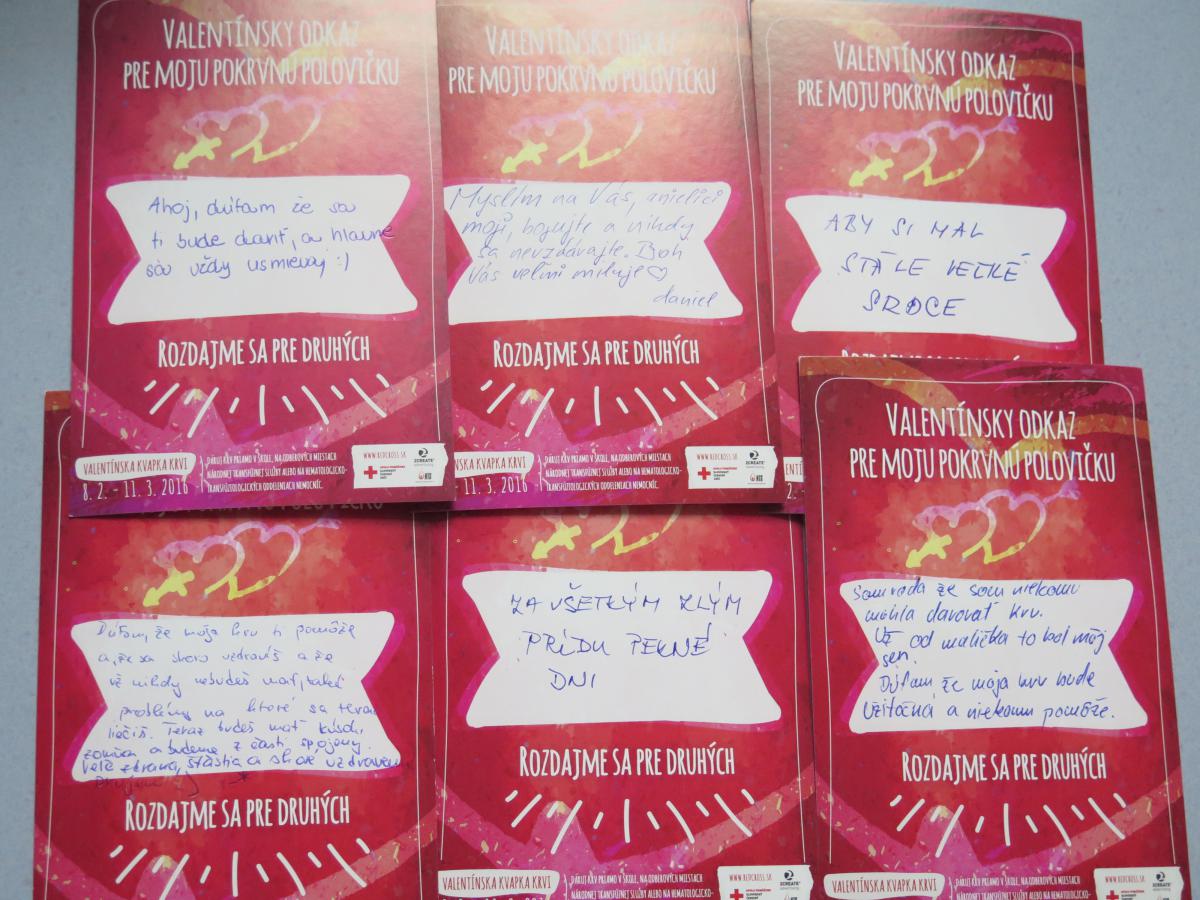 VALENTÍNSKY ODKAZ
PRE MOJU POKRVNÚ POLOVIČKU
Ahoj, dúfam že sa
ti bude dariť, a hlavne
sa vždy usmievaj :)
ROZDAJME SA PRE DRUHÝCH
VALENTÍNSKA KVAPKA KRVI
8. 2. - 11. 3. 2016
DARUJ KRV PRIAMO V ŠKOLE, NA ODBEROVÝCH MIESTACH
NÁRODNEJ TRANSFÚZNEJ SLUŽBY ALEBO NA HEMATOLOGICKO-
TRANSFÚZIOLOGICKÝCH ODDELENIACH NEMOCNÍC.
WWW.REDCROSS.SK
SLOVENSKÝ
ČERVENÝ
KRÍŽ
2CREATE
VALENTÍNSKY ODKAZ
PRE MOJU POKRVNÚ POLOVIČKU
Myslím na Vás, anielici
moji, bojujte a nikdy
sa nevzdávajte. Boh
Vás veľmi miluje ♡
daniel
ROZDAJME SA PRE DRUHÝCH
NSKA KVAPKA KRVI
11. 3. 2016
DARUJ KRV PRIAMO V ŠKOLE, NA ODBEROVÝCH MIESTACH
NÁRODNEJ TRANSFÚZNEJ SLUŽBY ALEBO NA HEMATOLOGICKO-
TRANSFÚZIOLOGICKÝCH ODDELENIACH NEMOCNÍC.
WWW.REDCROSS.SK
SLOVENSKÝ
ČERVENÝ
KRÍŽ
2CREATE
VALENTÍNSKY ODKAZ
PRE MOJU POKRVNÚ POLOVIČKU
ABY SI MAL
STÁLE VEĽKÉ
SRDCE
Dúfam, že moja krv ti pomôže
a, že sa skoro uzdravíš a že
už nikdy nebudeš mať také
problémy na ktoré sa teraz
liečiš. Teraz budeš mať kúsok
zo mňa a budeme z časti spojený.
Veľa zdravia, šťastia a skoré uzdravenie
ROZDAJME SA PRE DRUHÝCH
ZA VŠETKÝM ZLÝM
PRÍDU PEKNÉ
DNI
ROZDAJME SA PRE DRUHÝCH
VALENTÍNSKA KVAPKA KRVI
DARUJ KRV PRIAMO V ŠKOLE, NA ODBEROVÝCH MIESTACH
NÁRODNEJ TRANSFÚZNEJ SLUŽBY ALEBO NA HEMATOLOGICKO-
WWW.REDCROSS.SK
2CREATE
VALENTÍNSKY ODKAZ
PRE MOJU POKRVNÚ POLOVIČKU
Som rada že som niekomu
mohla darovať krv.
Už od malička to bol môj
sen.
Dúfam, že moja krv bude
užitočná a niekomu pomôže.
ROZDAJME SA PRE DRUHÝCH
VALENTÍNSKA KVAPKA KRVI
DARUJ KRV PRIAMO V ŠKOLE, NA ODBEROVÝCH MIESTACH
NÁRODNEJ TRANSFÚZNEJ SLUŽBY ALEBO NA HEMATOLOGICKO-
WWW.REDCROSS.SK
2CREATE